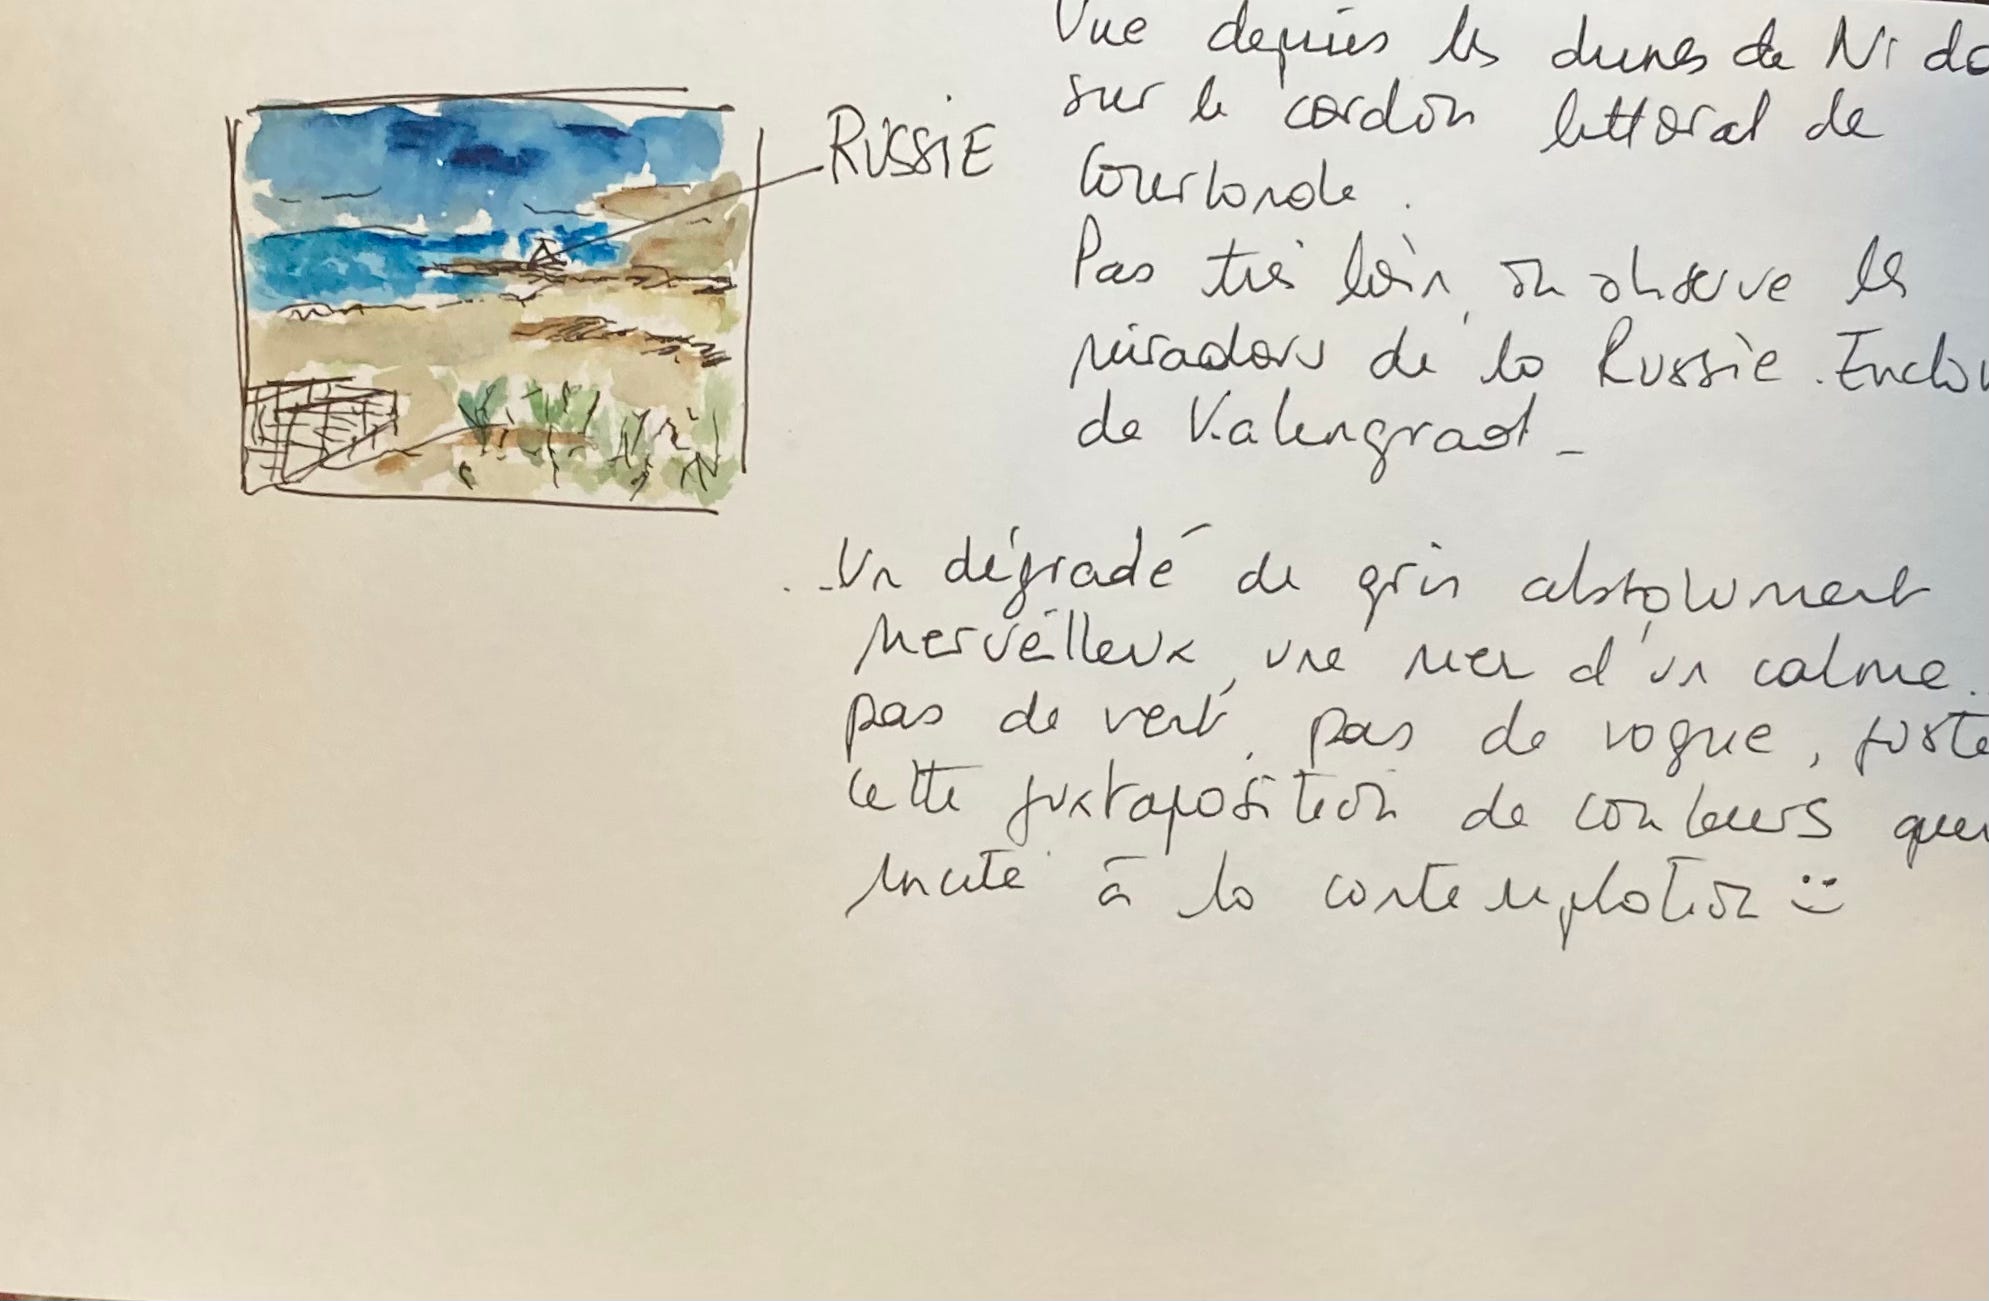 RUSSIE
Vue depuis les dunes de Nida
sur le cordon littoral de
Courlande.
Pas très loin, on observe les
miradors de la Russie. Enclav
de Kalengrad -
.. Un dégradé de gris absolument
merveilleux, une mer d'un calme.
pas de vent, pas de vague, juste
cette juxtaposition de couleurs qui
incite à la contemplation :)